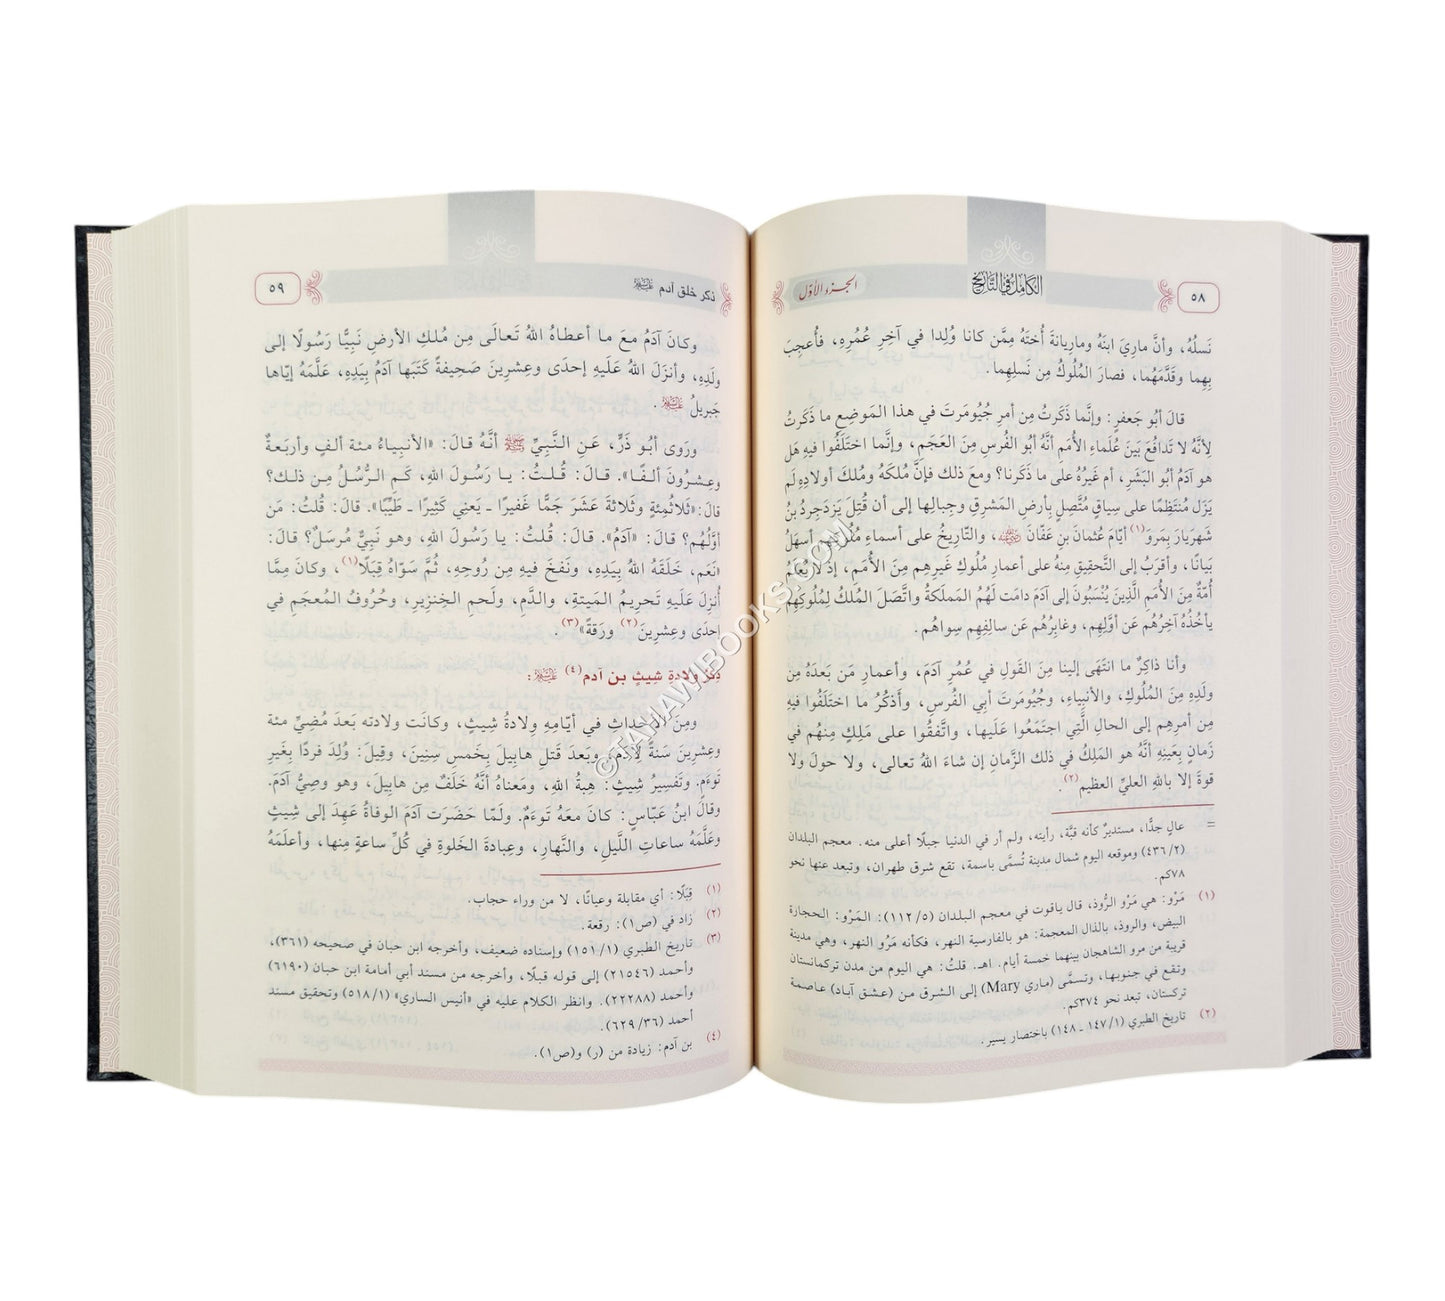 ٥٨
الكَامِلُ في التَّاريخ
الجزء الأوّل
نَسلُهُ، وأنَّ مارِيَ ابنَهُ ومارِيانَةَ أُختَهُ مِمَّن كانا وُلِدا في آخِرِ عُمُرِهِ، فأُعجِبَ
بِهِما وقَدَّمَهُما، فصارَ المُلُوكُ مِن نَسلِهِما.
قالَ أبُو جَعفرٍ: وإنَّما ذَكَرتُ مِن أمرِ جُيُومَرتَ في هذا المَوضِعِ ما ذَكَرتُ
لِأنَّهُ لا تَدافُعَ بَينَ عُلَماءِ الأُمَمِ أنَّهُ أبُو الفُرسِ مِنَ العَجَمِ، وإنَّما اختَلَفُوا فيهِ هَل
هو آدَمُ أبُو البَشَرِ، أم غَيرُهُ على ما ذَكَرنا؟ ومعَ ذلك فإنَّ مُلكَهُ ومُلكَ أولادِهِ لَم
يَزَل مُنتَظِمًا على سِياقٍ مُتَّصِلٍ بِأرضِ المَشرِقِ وجِبالِها إلى أن قُتِلَ يَزدَجِردُ بنُ
شَهرَيارَ بِمَروَ(١) أيّامَ عُثمانَ بنِ عَفّانَ ﷺ، والتّارِيخُ على أسماءِ مُلُوكِهِم أسهَلُ
بَيانًا، وأقرَبُ إلى التَّحقِيقِ مِنهُ على أعمارِ مُلُوكِ غَيرِهِم مِنَ الأُمَمِ، إذ لا يُعلَمُ
أُمَّةٌ مِنَ الأُمَمِ الَّذِينَ يُنسَبُونَ إلى آدَمَ دامَت لَهُمُ المَملَكةُ واتَّصَلَ المُلكُ لِمُلُوكِهِم
يأخُذُهُ آخِرُهُم عَن أوَّلِهِم، وغابِرُهُم عَن سالِفِهِم سِواهُم.
وأنا ذاكِرٌ ما انتَهَى إلينا مِنَ القَولِ في عُمُرِ آدَمَ، وأعمارِ مَن بَعدَهُ مِن
ولَدِهِ مِنَ المُلُوكِ، والأنبِياءِ، وجُيُومَرتَ أبِي الفُرسِ، وأذكُرُ ما اختَلَفُوا فيهِ
مِن أمرِهِم إلى الحالِ الَّتِي اجتَمَعُوا عَلَيها، واتَّفقُوا على مَلِكٍ مِنهُم في
زَمانٍ بِعَينِهِ أنَّهُ هو المَلِكُ في ذلك الزَّمانِ إن شاءَ اللهُ تعالى، ولا حولَ ولا
قوةَ إلا باللهِ العليِّ العظيم(٢).
= عالٍ جدًّا، مستديرٌ كأنه قبَّة، رأيته، ولم أر في الدنيا جبلًا أعلى منه. معجم البلدان
(٤٣٦/٢) وموقعه اليوم شمال مدينة تُسمَّى باسمة، تقع شرق طهران، وتبعد عنها نحو
٧٨كم.
(١) مَرْو: هي مَرْو الرُّوذ، قال ياقوت في معجم البلدان (١١٢/٥): المَرْو: الحجارة
البيض، والروذ، بالذال المعجمة: هو بالفارسية النهر، فكأنه مَرْو النهر، وهي مدينة
قريبة من مرو الشاهجان بينهما خمسة أيام. اهـ. قلتُ: هي اليوم من مدن تركمانستان
وتقع في جنوبها، وتسمَّى (ماري Mary) إلى الشرق من (عشق آباد) عاصمة
تركستان، تبعد نحو ٣٧٤كم.
(٢) تاريخ الطبري (١٤٧/١ ـ ١٤٨) باختصار يسير.
ذكر خلق آدم
٥٩
وكانَ آدَمُ معَ ما أعطاهُ اللهُ تَعالَى مِن مُلكِ الأرضِ نَبِيًّا رَسُولًا إلى
ولَدِهِ، وأنزَلَ اللهُ عَلَيهِ إحدَى وعِشرِينَ صَحِيفةً كَتَبَها آدَمُ بِيَدِهِ، عَلَّمَهُ إيّاها
جَبريلُ.
ورَوى أبُو ذَرٍّ، عَنِ النَّبِيِّ ﷺ أنَّهُ قالَ: «الأنبِياءُ مئة ألفٍ وأربَعةٌ
وعِشرُونَ ألفًا». قالَ: قُلتُ: يا رَسُولَ اللهِ، كَمِ الرُّسُلُ مِن ذلك؟
قالَ: «ثَلاثُمِئةٍ وثَلاثةَ عَشَرَ جَمًّا غَفِيرًا ـ يَعنِي كَثِيرًا ـ طَيِّبًا». قالَ: قُلتُ: مَن
أوَّلُهُم؟ قالَ: «آدَمُ». قالَ: قُلتُ: يا رَسُولَ اللهِ، وهو نَبِيٌّ مُرسَلٌ؟ قالَ:
«نَعَم، خَلَقَهُ اللهُ بِيَدِهِ، ونَفَخَ فيهِ مِن رُوحِهِ، ثُمَّ سَوّاهُ قِبَلًا(١)، وكانَ مِمَّا
أُنزِلَ عَلَيهِ تَحرِيمُ المَيتةِ، والدَّمِ، ولَحمِ الخِنزِيرِ، وحُرُوفُ المُعجَمِ في
إحدَى وعِشرِينَ(٢) ورَقةً»(٣).
ذِكرُ وِلادةِ شِيثِ بن آدم(٤):
ومِنَ الأحداثِ في أيّامِهِ وِلادةُ شِيثٍ، وكانَت ولادته بَعدَ مُضِيِّ مئة
وعِشرِينَ سَنةً لِآدَمَ، وبَعدَ قَتلِ هابِيلَ بِخَمسِ سِنِينَ، وقِيلَ: وُلِدَ فردًا بِغَيرِ
تَوءَمٍ. وتَفسِيرُ شِيثٍ: هِبةُ اللهِ، ومَعناهُ أنَّهُ خَلَفٌ مِن هابِيلَ، وهو وصِيُّ آدَمَ.
وقالَ ابنُ عَبّاسٍ: كانَ معَهُ تَوءَمٌ. ولَمّا حَضَرَت آدَمَ الوفاةُ عَهِدَ إلى شِيثٍ
وعَلَّمَهُ ساعاتِ اللَّيلِ، والنَّهارِ، وعِبادةَ الخَلوةِ في كُلِّ ساعةٍ مِنها، وأعلَمَهُ
(١) قِبَلًا: أي مقابلة وعيانًا، لا من وراء حجاب.
(٢) زاد في (ص١): رقعة.
(٣) تاريخ الطبري (١٥١/١) وإسناده ضعيف، وأخرجه ابن حبان في صحيحه (٣٦١)،
وأحمد (٢١٥٤٦) إلى قوله قبلًا، وأخرجه من مسند أبي أمامة ابن حبان (٦١٩٠)
وأحمد (٢٢٢٨٨). وانظر الكلام عليه في «أنيس الساري» (٥١٨/١) وتحقيق مسند
أحمد (٦٢٩/٣٦).
(٤) بن آدم: زيادة من (ر) و(ص١).
©TAHAWIBOOKS.COM